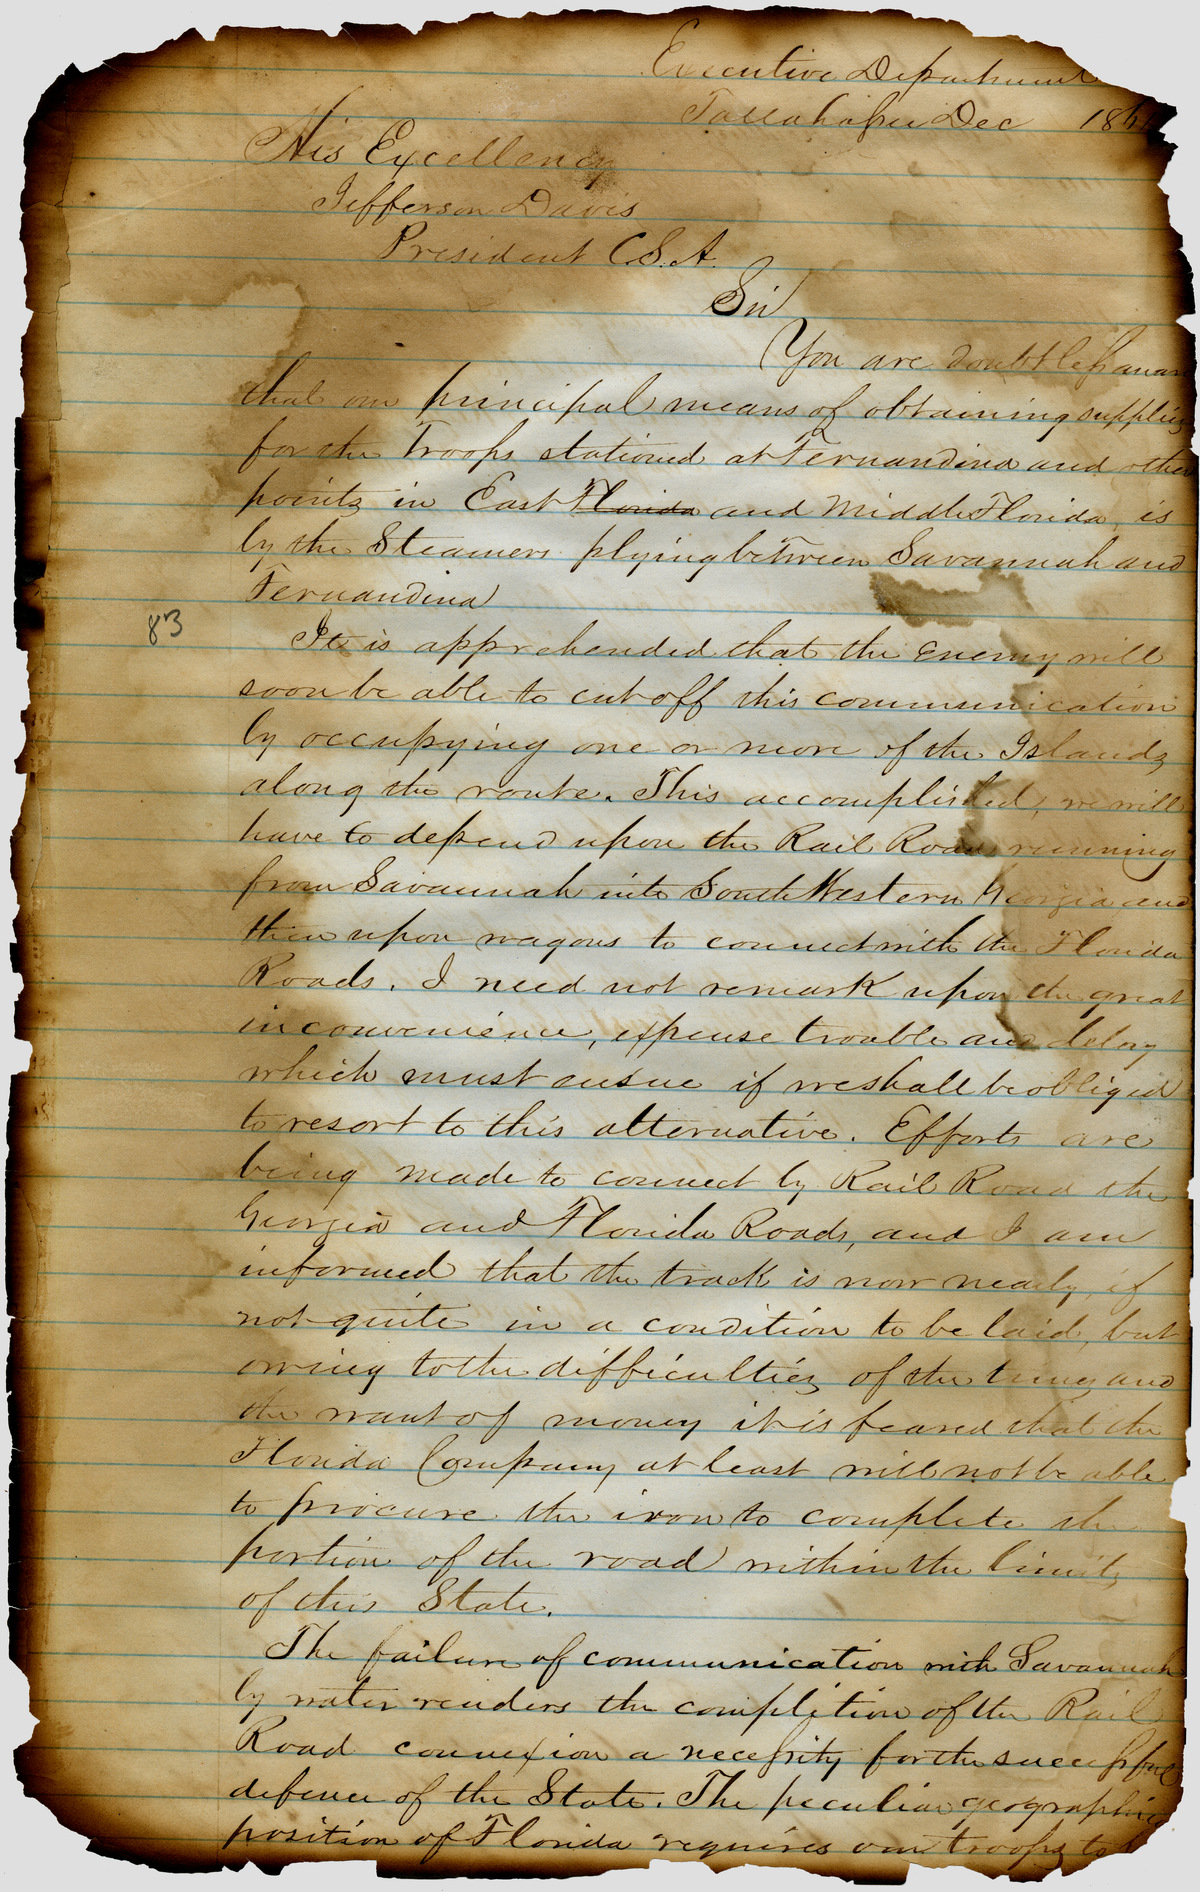 Executive Department
Tallahassee Dec 186
His Excellency
Jefferson Davis
President C.S.A.
Sir
You are doubtless aware
that our principal means of obtaining supplies
for the Troops stationed at Fernandina and other
points in East Florida and Middle Florida, is
by the Steamers plying between Savannah and
Fernandina
83
It is apprehended that the Enemy will
soon be able to cut off this communication
by occupying one or more of the Islands
along the route. This accomplished, we will
have to depend upon the Rail Road running
from Savannah into South Western Georgia and
then upon wagons to connect with the Florida
Roads. I need not remark upon the great
inconvenience, expense trouble and delay
which must ensue if we shall be obliged
to resort to this alternative. Efforts are
being made to connect by Rail Road the
Georgia and Florida Roads, and I am
informed that the track is now nearly, if
not quite in a condition to be laid, but
owing to the difficulties of the times and
the want of money it is feared that the
Florida Company at least will not be able
to procure the iron to complete the
portion of the road within the limits
of this State.
The failure of communication with Savannah
by water renders the completion of the Rail
Road connexion a necessity for the successful
defence of the State. The peculiar geographic
position of Florida requires our troops to